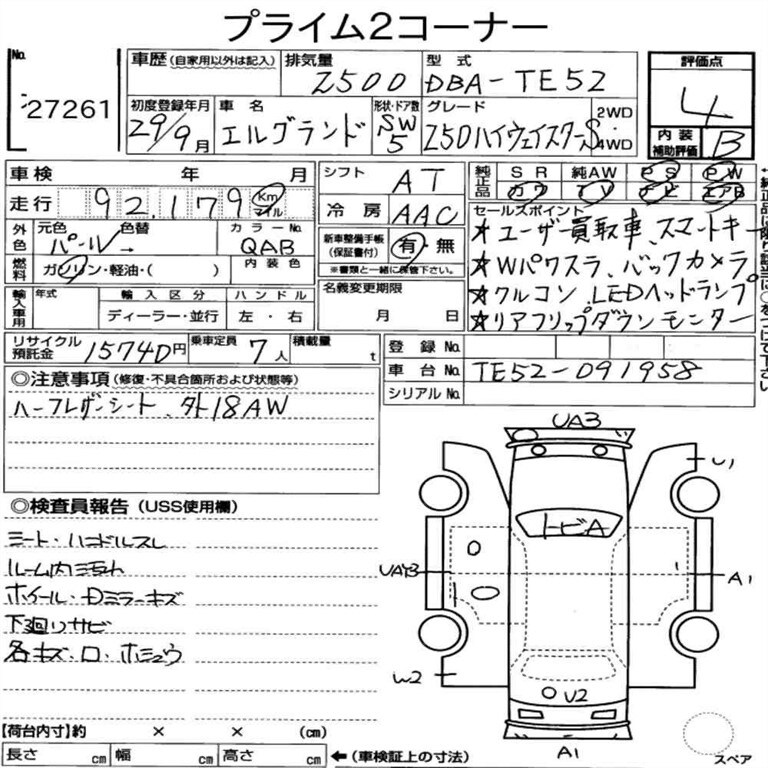 プライム2コーナー
No.
27261
車歴 (自家用以外は記入)
排気量
2500
型式
DBA-TE52
評価点
4
初度登録年月
29年9月
車名
エルグランド
形状・ドア数
SW
5
グレード
250ハイウェイスターS
2WD
4WD
内装
補助評価
B
車検 年 月
シフト
AT
純正品
SR 純AW PS PW
カワ TV ナビ エアB
走行
92,179
Km
マイル
冷房
AAC
セールスポイント
★ユーザー買取車、スマートキー
★Wパワスラ、バックカメラ
★クルコン、LEDヘッドランプ
★リアフリップダウンモニター
外色
元色 色替
パール→
カラーNo.
QAB
新車整備手帳
(保証書付)
有・無
※書類と一緒に保管下さい。
燃料
ガソリン・軽油・( )
内装色
名義変更期限
月 日
輸入車用
年式
輸入区分
ディーラー・並行
ハンドル
左・右
リサイクル
預託金
15740円
乗車定員
7人
積載量
t
登録No.
車台No.
TE52-091958
シリアルNo.
◎注意事項 (修復・不具合箇所および状態等)
ハーフレザーシート、外18AW
◎検査員報告 (USS使用欄)
シート・ハンドルスレ
ルーム内汚れ
ホイール・Dミラーキズ
下廻りサビ
各キズ・凹・ホシュウ
UA3
U1
トビA
A1
W2
U2
A1
スペア
【荷台内寸】約 × × (cm)
長さ cm 幅 cm 高さ cm
←(車検証上の寸法)